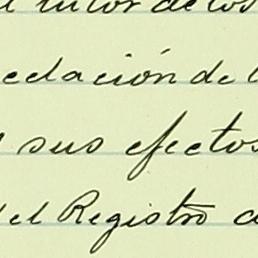 tutor de los
edación de l
sus efectos
del Registro